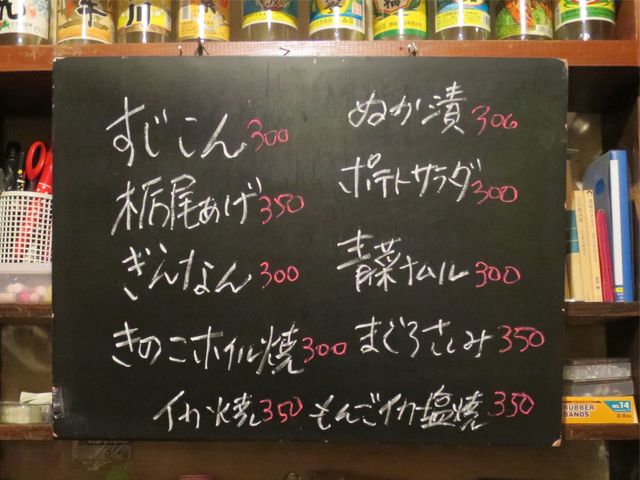 すじこん 300
栃尾あげ 350
ぎんなん 300
きのこホイル焼 300
イカ焼 350
ぬか漬 300
ポテトサラダ 300
青菜ナムル 300
まぐろさしみ 350
もんごイカ塩焼 350
RUBBER BANDS
No.14